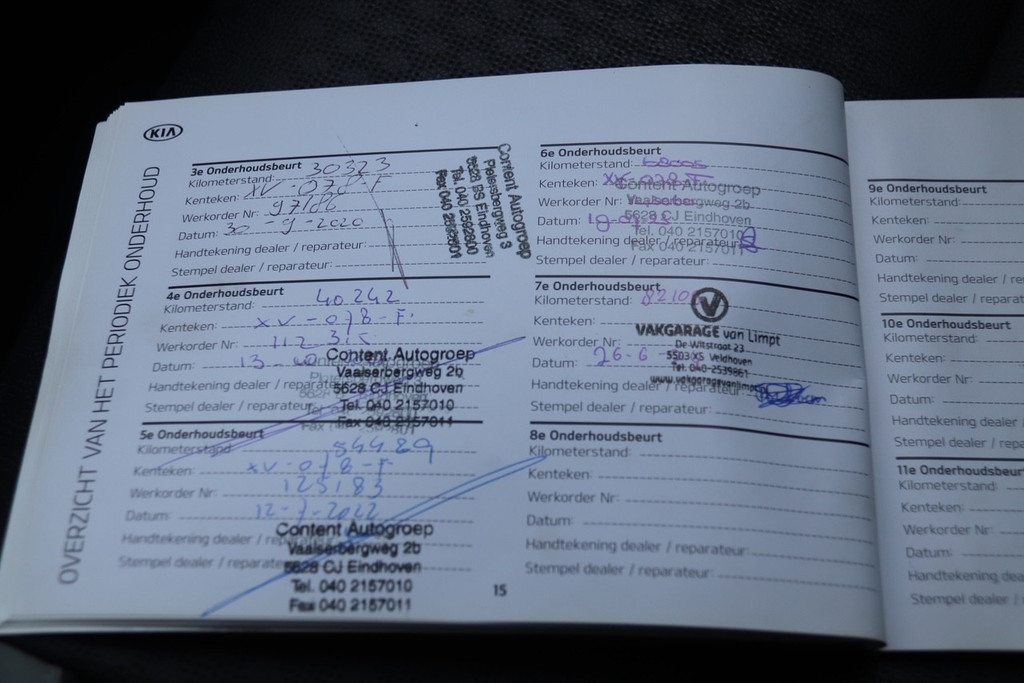 KIA
OVERZICHT VAN HET PERIODIEK ONDERHOUD
3e Onderhoudsbeurt
Kilometerstand: 30323
Kenteken: XV-078-F
Werkorder Nr:
Datum: 30-9-2020
Handtekening dealer / reparateur:
Stempel dealer / reparateur:
Content Autogroep
Pietersbergweg 3
5628 BS Eindhoven
Tel. 040
Fax 040
4e Onderhoudsbeurt
Kilometerstand: 40242
Kenteken: XV-078-F.
Werkorder Nr: 112315
Datum: 13
Handtekening dealer / reparateur:
Stempel dealer / reparateur:
Content Autogroep
Vaalserbergweg 2b
5628 CJ Eindhoven
Tel. 040 2157010
Fax 040 2157011
5e Onderhoudsbeurt
Kilometerstand: 54489
Kenteken: XV-078-F
Werkorder Nr: 125183
Datum: 12-7-2022
Handtekening dealer / reparateur:
Stempel dealer / reparateur:
Content Autogroep
Vaalserbergweg 2b
5628 CJ Eindhoven
Tel. 040 2157010
Fax 040 2157011
15
6e Onderhoudsbeurt
Kilometerstand: 68005
Kenteken: XV-078-F
Werkorder Nr:
Datum:
Handtekening dealer / reparateur:
Stempel dealer / reparateur:
Content Autogroep
Vaalserbergweg 2b
5628 CJ Eindhoven
Tel. 040 2157010
Fax 040 2157011
7e Onderhoudsbeurt
Kilometerstand: 8210
Kenteken:
Werkorder Nr:
Datum: 26-6
Handtekening dealer / reparateur:
Stempel dealer / reparateur:
VAKGARAGE van Limpt
De Witstraat 23
5503 XS Veldhoven
Tel. 040-2539861
8e Onderhoudsbeurt
Kilometerstand:
Kenteken:
Werkorder Nr:
Datum:
Handtekening dealer / reparateur:
Stempel dealer / reparateur:
9e Onderhoudsbeurt
Kilometerstand:
Kenteken:
Werkorder Nr:
Datum:
Handtekening dealer / re
Stempel dealer / reparat
10e Onderhoudsbeurt
Kilometerstand:
Kenteken:
Werkorder Nr:
Datum:
Handtekening dealer
Stempel dealer / repa
11e Onderhoudsbeur
Kilometerstand:
Kenteken:
Werkorder Nr:
Datum:
Handtekening deale
Stempel dealer / r